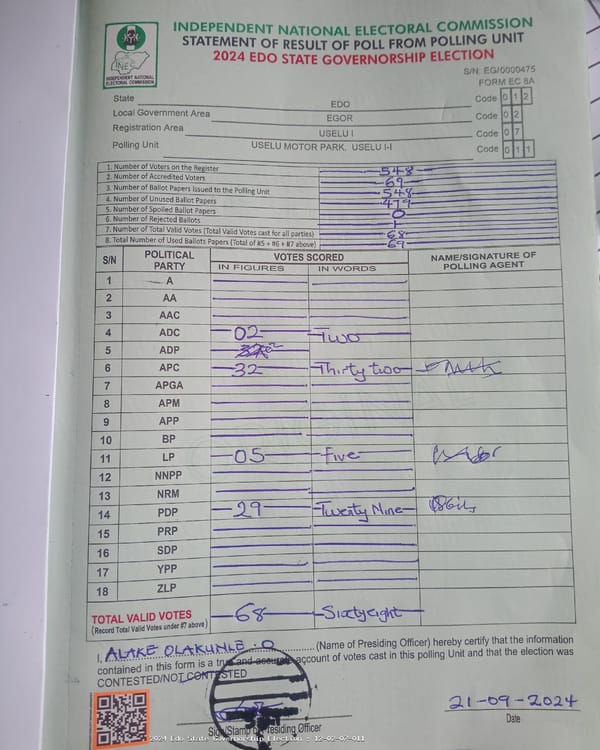 INDEPENDENT NATIONAL ELECTORAL COMMISSION
STATEMENT OF RESULT OF POLL FROM POLLING UNIT
2024 EDO STATE GOVERNORSHIP ELECTION
INEC
INDEPENDENT NATIONAL
ELECTORAL COMMISSION
S/N: EG/0000475
FORM EC 8A
State EDO Code 0 1 2
Local Government Area EGOR Code 0 2
Registration Area USELU I Code 0 7
Polling Unit USELU MOTOR PARK, USELU I-I Code 0 1 1
1. Number of Voters on the Register 548
2. Number of Accredited Voters 69
3. Number of Ballot Papers Issued to the Polling Unit 548
4. Number of Unused Ballot Papers 479
5. Number of Spoiled Ballot Papers 0
6. Number of Rejected Ballots 1
7. Number of Total Valid Votes (Total Valid Votes cast for all parties) 68
8. Total Number of Used Ballots Papers (Total of #5 + #6 + #7 above) 69
S/N POLITICAL PARTY VOTES SCORED NAME/SIGNATURE OF POLLING AGENT
IN FIGURES IN WORDS
1 A
2 AA
3 AAC
4 ADC 02 Two
5 ADP
6 APC 32 Thirty two
7 APGA
8 APM
9 APP
10 BP
11 LP 05 five
12 NNPP
13 NRM
14 PDP 29 Twenty Nine
15 PRP
16 SDP
17 YPP
18 ZLP
TOTAL VALID VOTES 68 Sixty eight
(Record Total Valid Votes under #7 above)
I, ALAKE OLAKUNLE . O (Name of Presiding Officer) hereby certify that the information
contained in this form is a true and accurate account of votes cast in this polling Unit and that the election was
CONTESTED/NOT CONTESTED
21-09-2024
Sign/Stamp of Presiding Officer Date
2024 Edo State Governorship Election - 12-02-07-011